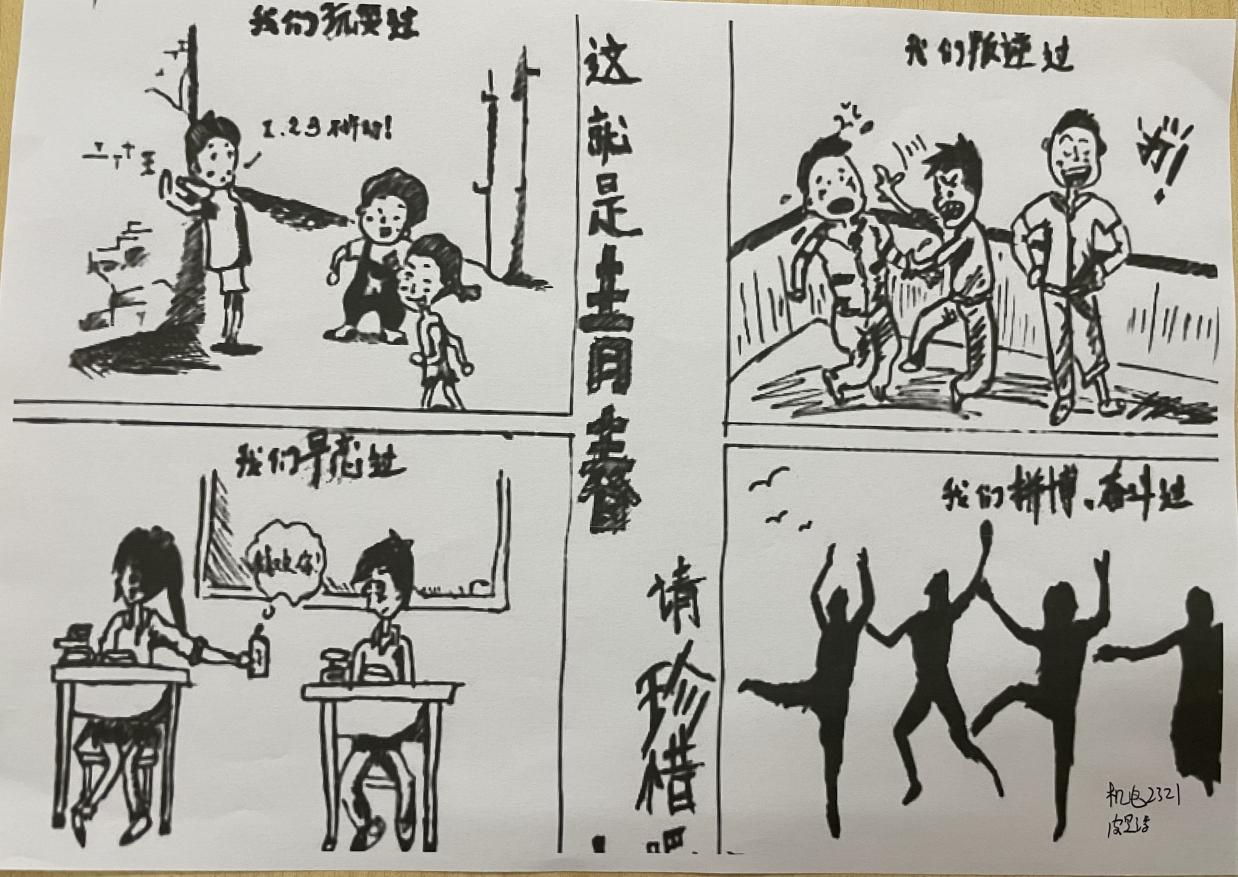 我们玩耍过
1.2.3不许动!
我们叛逆过
打!
这就是青春
请珍惜吧
我们早恋过
喜欢你!
我们拼博、奋斗过
机电2321